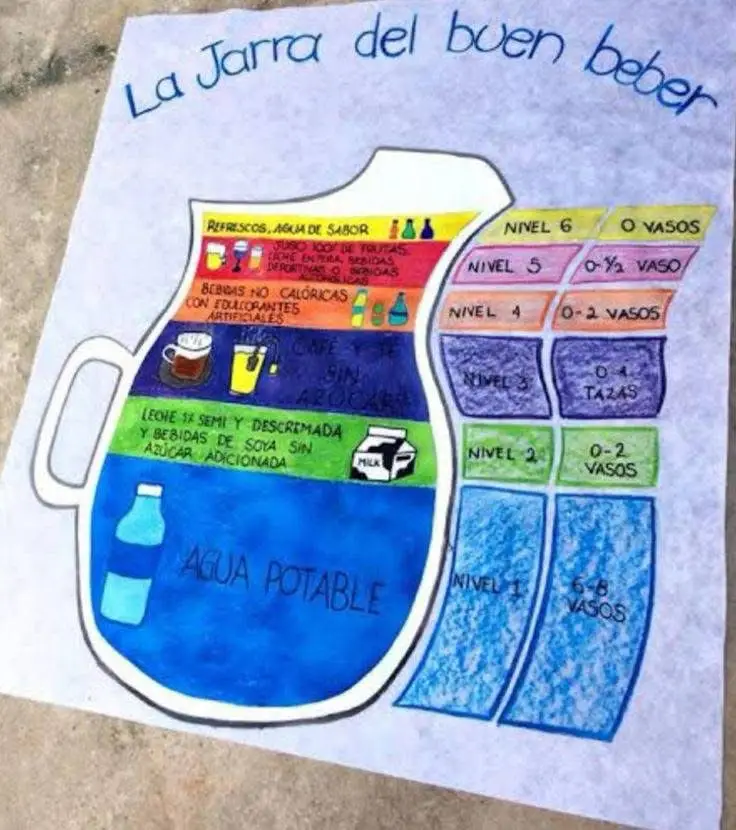 La Jarra del buen beber
REFRESCOS, AGUA DE SABOR
NIVEL 6
0 VASOS
JUGO 100% DE FRUTAS,
LECHE ENTERA, BEBIDAS
DEPORTIVAS O BEBIDAS
ALCOHOLICAS
NIVEL 5
0-½ VASO
BEBIDAS NO CALÓRICAS
CON EDULCORANTES
ARTIFICIALES
NIVEL 4
0-2 VASOS
CAFÉ Y TÉ
SIN
AZÚCAR
NIVEL 3
0-4
TAZAS
LECHE 1% SEMI Y DESCREMADA
Y BEBIDAS DE SOYA SIN
AZÚCAR ADICIONADA
MILK
NIVEL 2
0-2
VASOS
AGUA POTABLE
NIVEL 1
6-8
VASOS